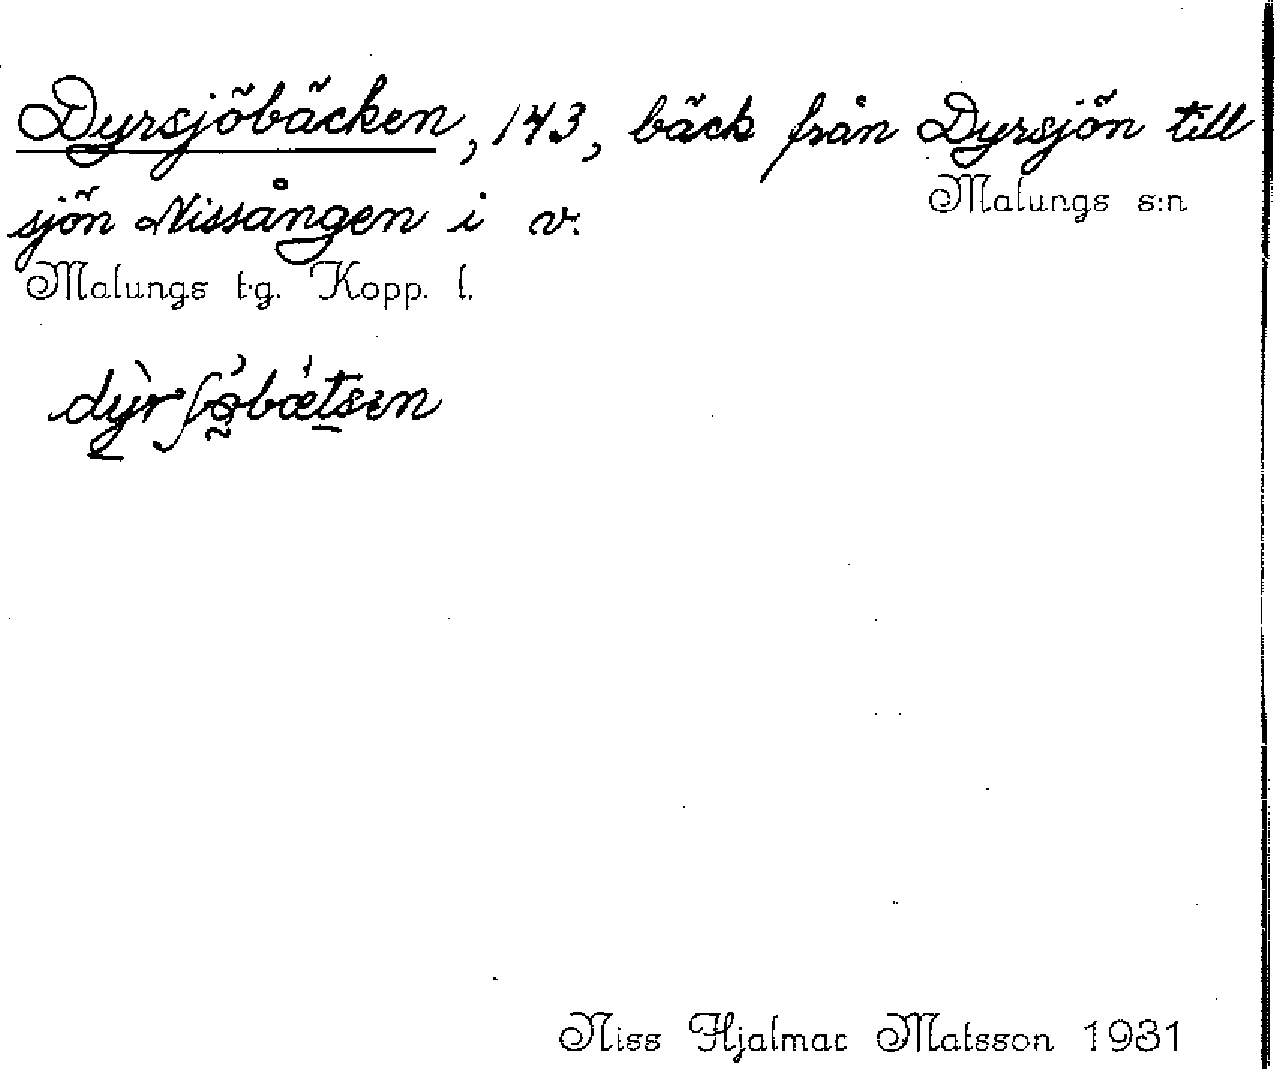 Dyrsjöbäcken, 143, bäck från Dyrsjön till
Malungs s:n
sjön Nissången i v.
Malungs t.g. Kopp. l.
dỳrʃə̀bætsen
Niss Hjalmar Matsson 1931